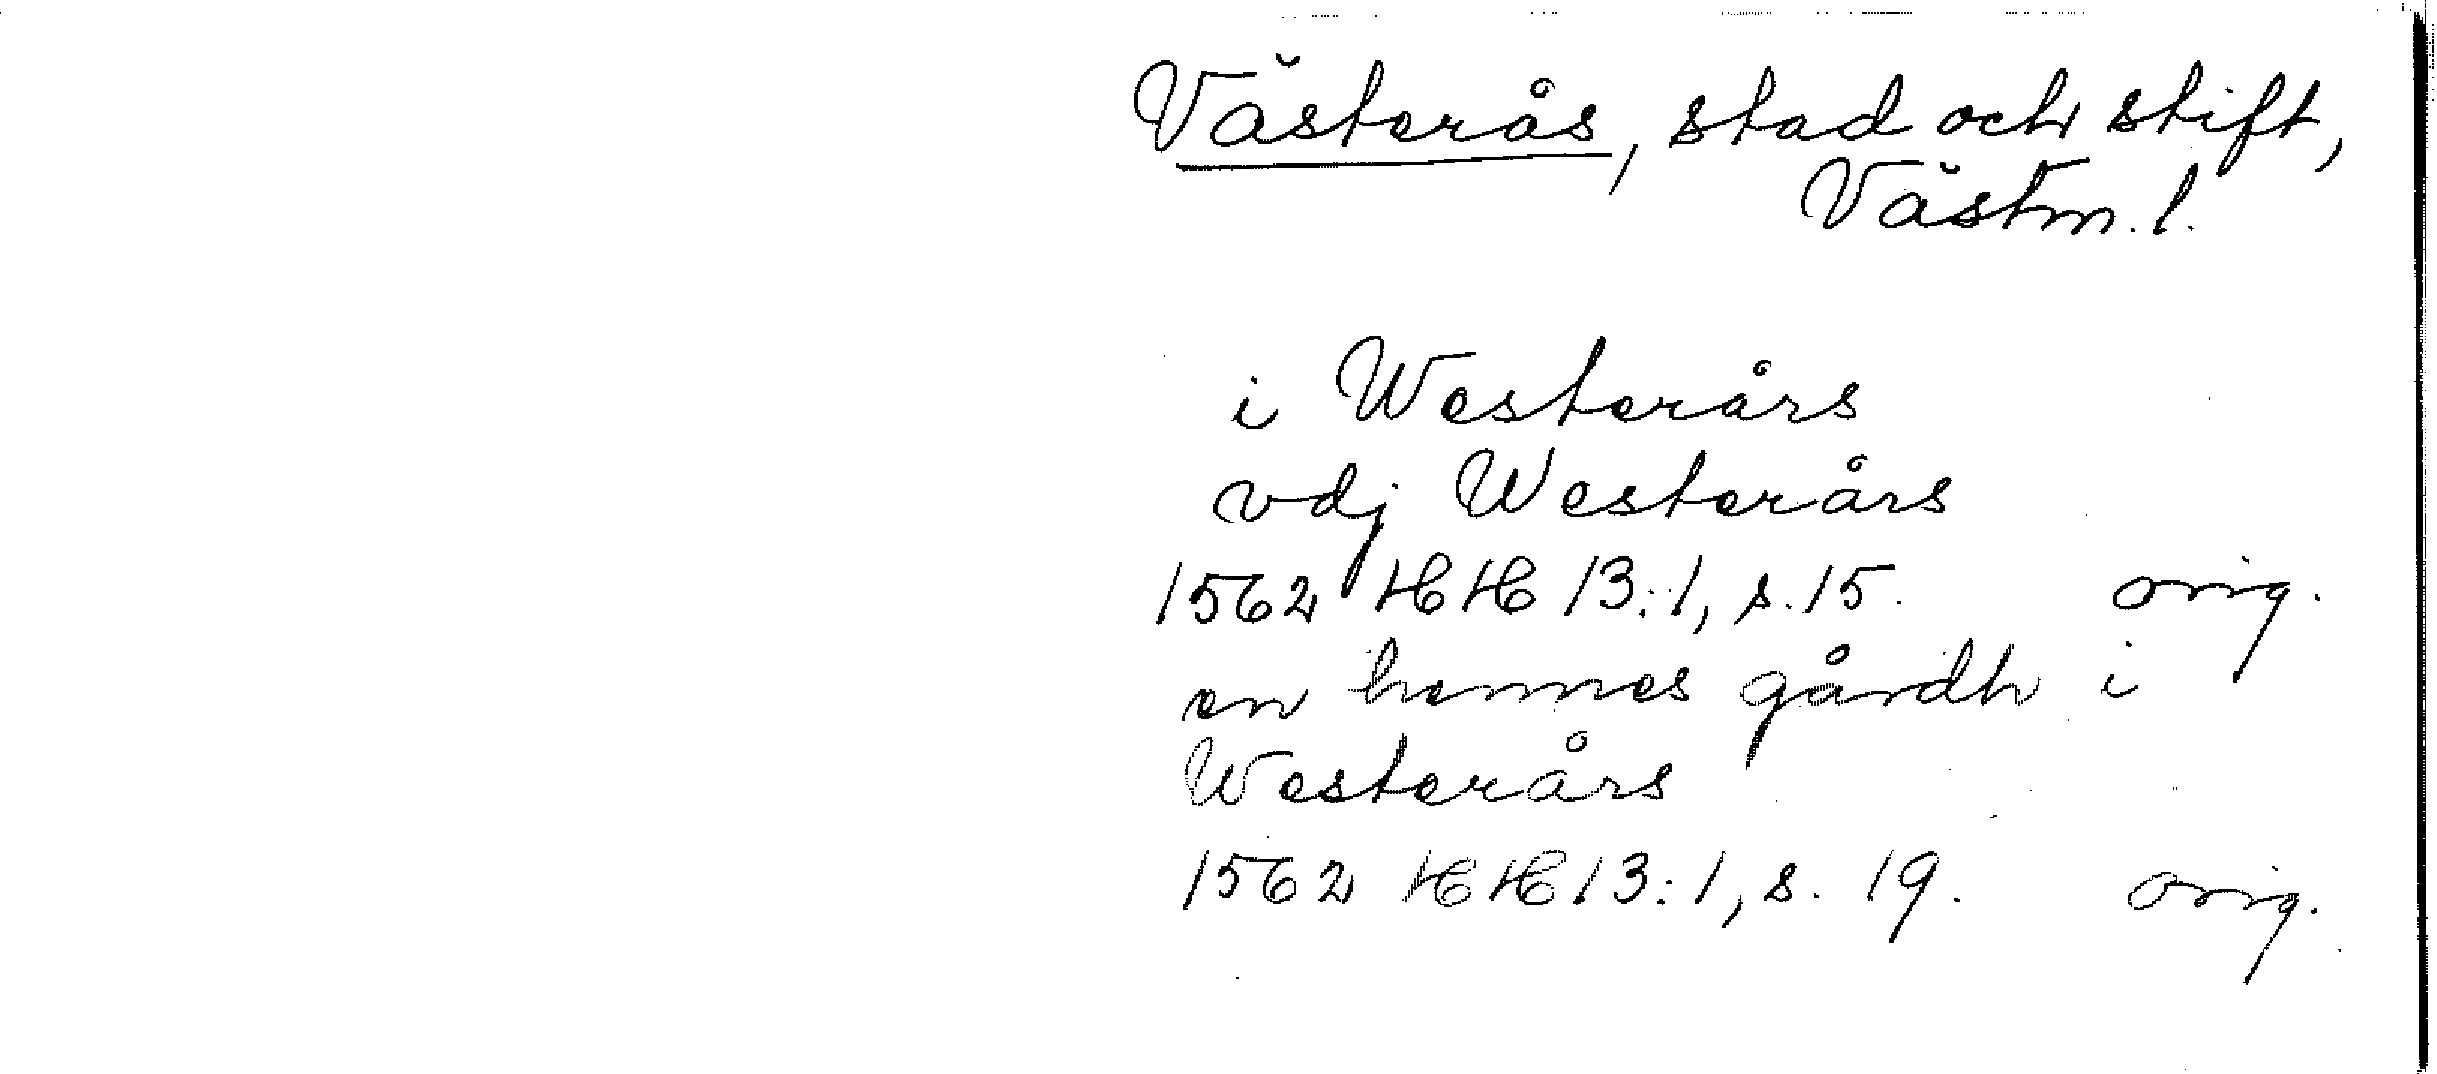 Västerås, stad och stift,
Västm. l.
i Westerårs
vdj Westerårs
1562 HH 13:1, s. 15. orig.
en hennes gårdh i
Westerårs
1562 HH 13:1, s. 19. orig.